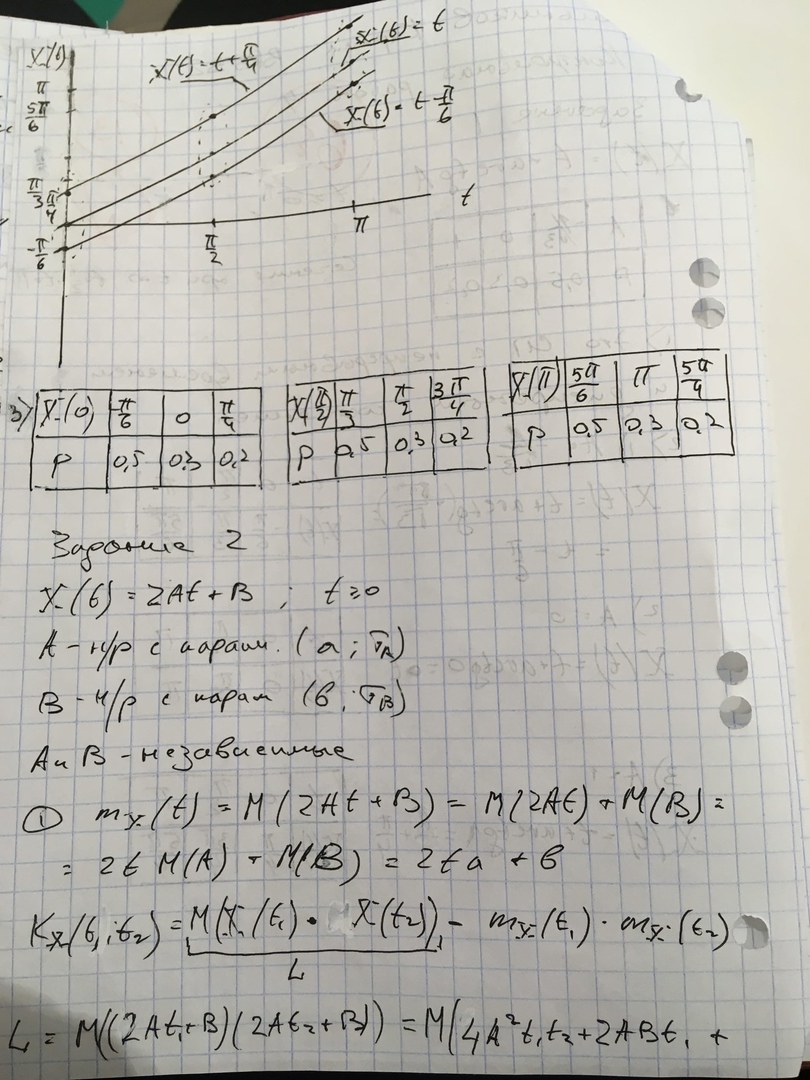 X(t)
π
5π/6
π/3 π/4
-π/6
X(t) = t + π/4
X(t) = t
X(t) = t - π/6
t
π/2
π
3) X(0) | -π/6 | 0 | π/4
P | 0,5 | 0,3 | 0,2
X(π/2) | π/3 | π/2 | 3π/4
P | 0,5 | 0,3 | 0,2
X(π) | 5π/6 | π | 5π/4
P | 0,5 | 0,3 | 0,2
Задание 2
X(t) = 2At + B ; t ≥ 0
A - н/р с парам. (a ; σ_A)
B - н/р с парам (b ; σ_B)
A и B - независимые
① m_X(t) = M(2At + B) = M(2At) + M(B) =
= 2t M(A) + M(B) = 2ta + b
K_X(t₁; t₂) = M(X(t₁) · X(t₂)) - m_X(t₁) · m_X(t₂)
L
L = M((2At₁+B)(2At₂+B)) = M(4A²t₁t₂ + 2ABt₁ +